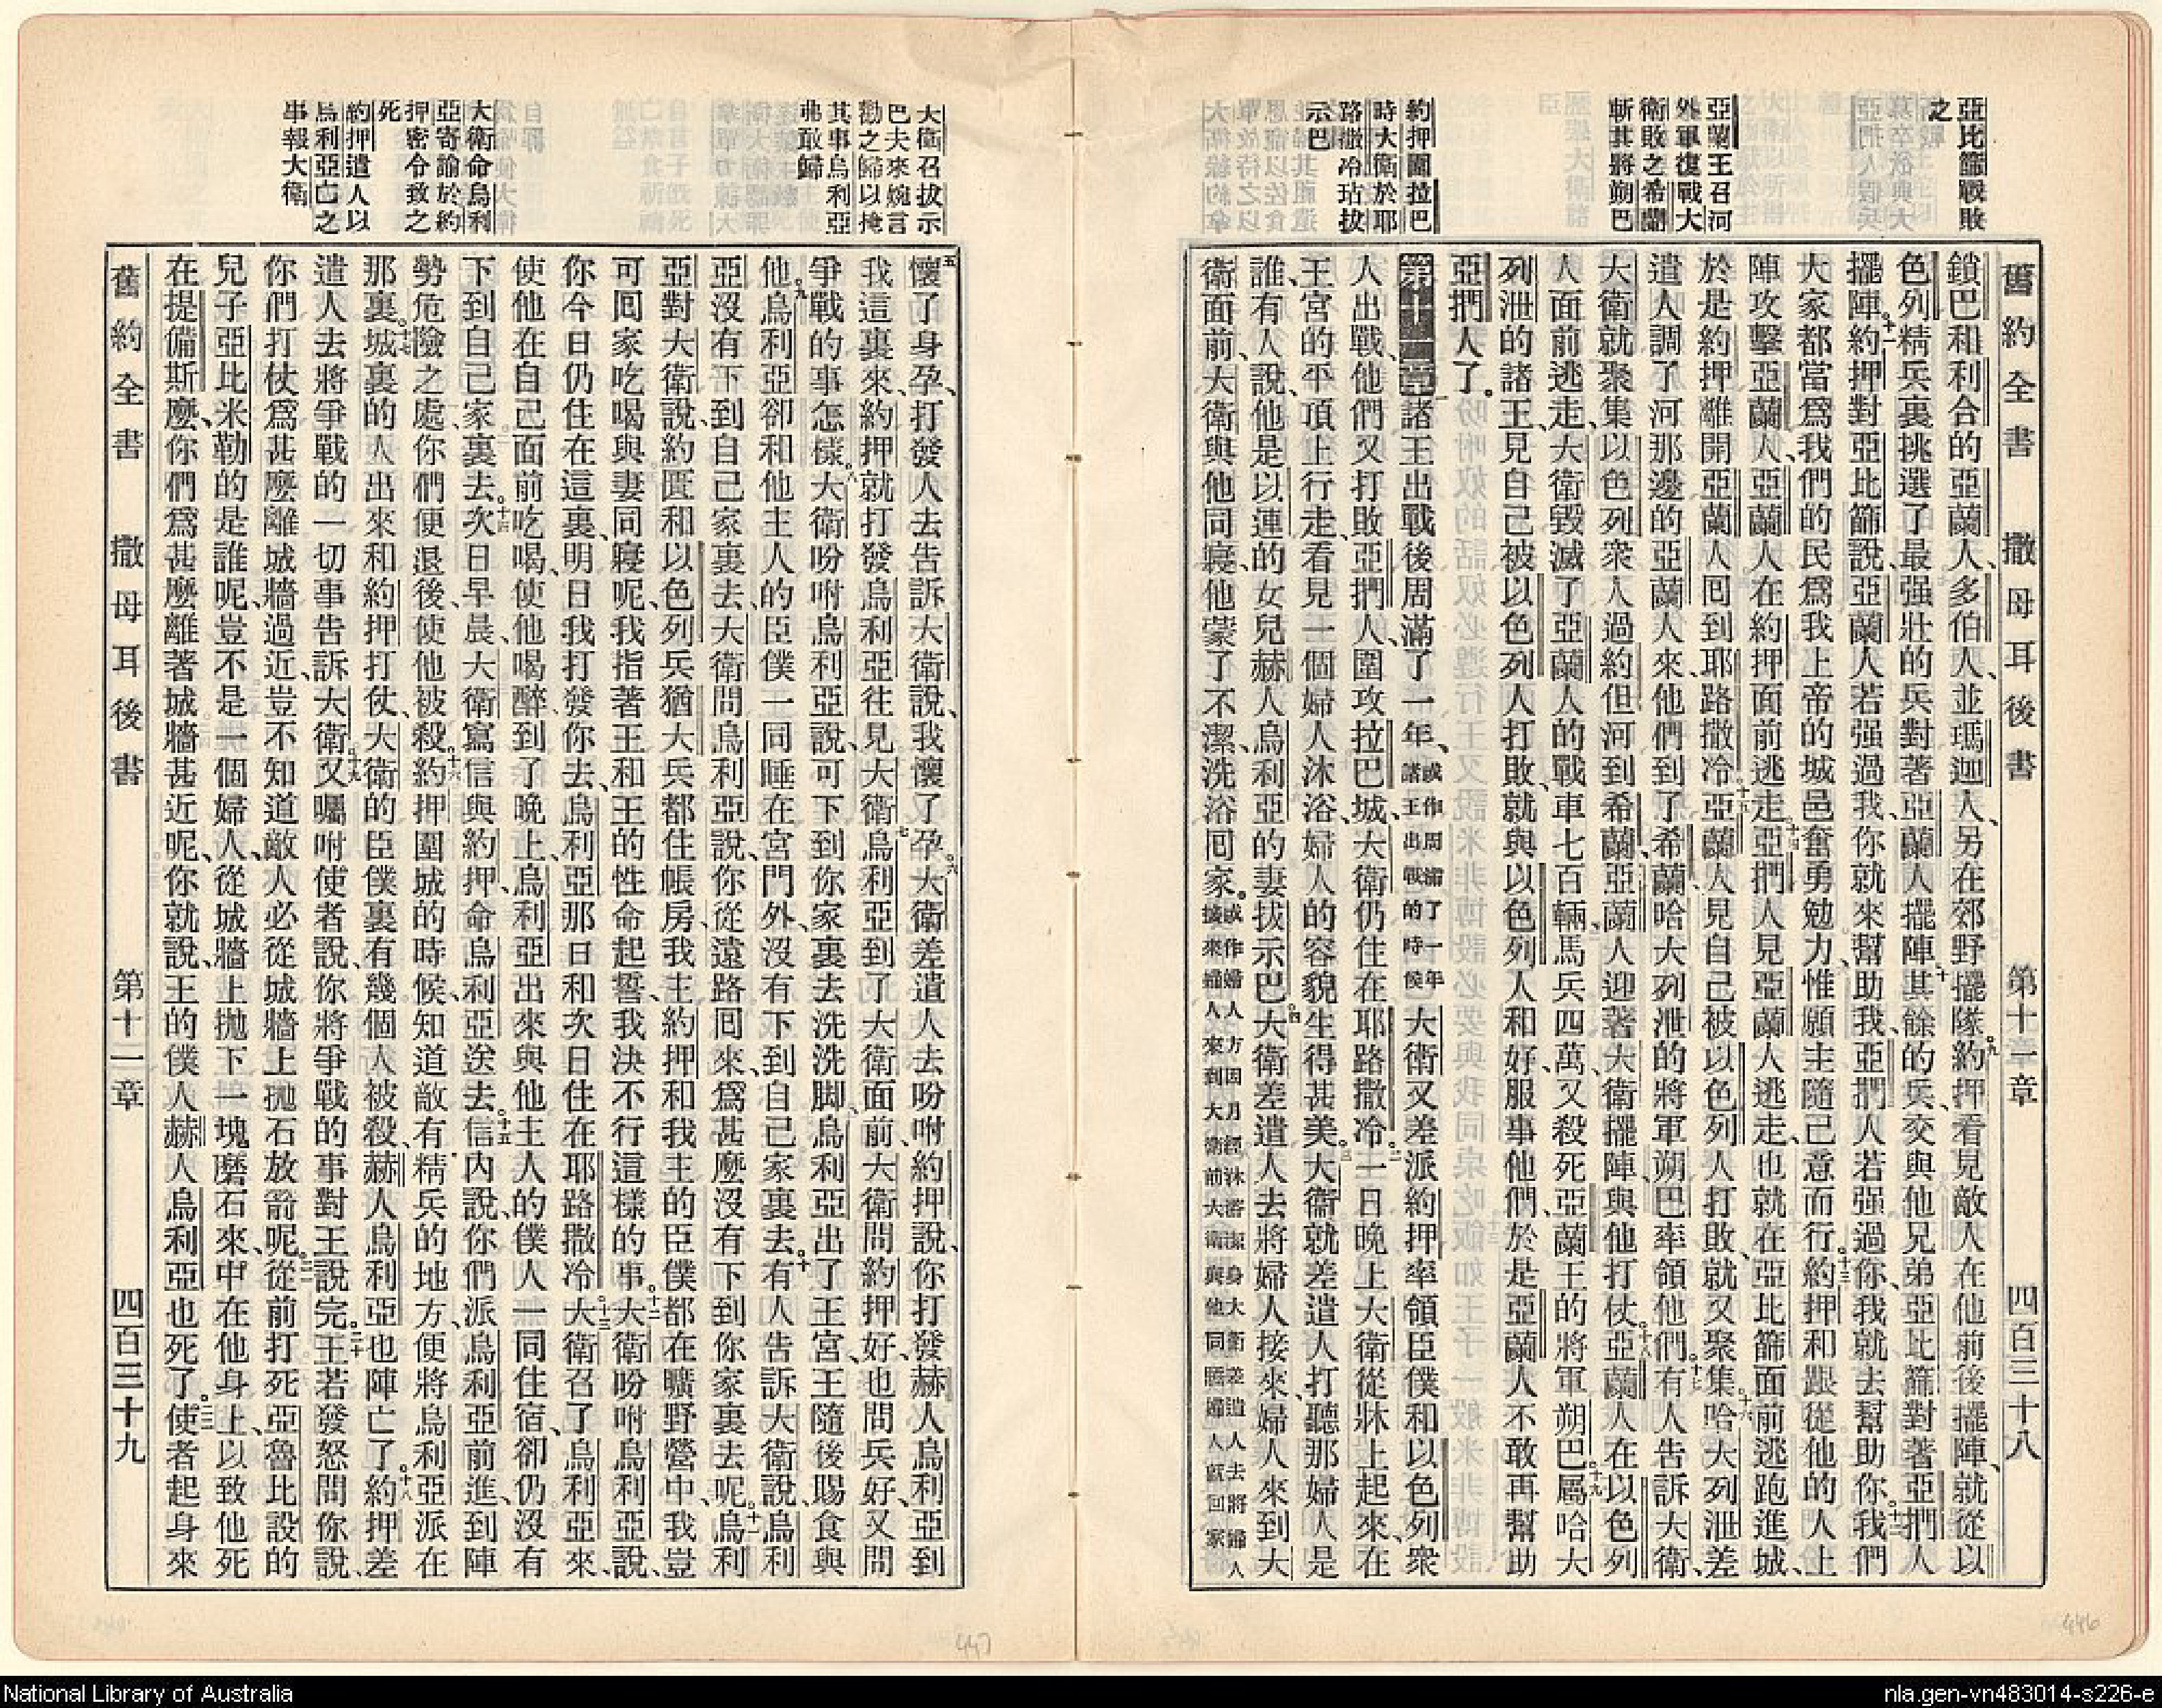 舊約全書 撒母耳後書 第十一章 四百三十八
亞比篩戰敗
之
亞蘭王召河
外軍復戰大
衛敗之希蘭
斬其將朔巴
約押圍拉巴
時大衛於耶
路撒冷玷拔
示巴
鎖巴和利合的亞蘭人、多伯人、並瑪迦人、另在郊野擺隊。九約押看見敵人在他前後擺陣、就從以
色列精兵裏挑選了最强壯的兵對著亞蘭人擺陣、十其餘的兵、交與他兄弟亞比篩對著亞捫人
擺陣。十一約押對亞比篩說、亞蘭人若强過我、你就來幫助我、亞捫人若强過你、我就去幫助你。十二我們
大家都當爲我們的民、爲我上帝的城邑奮勇勉力、惟願主隨己意而行。十三約押和跟從他的人上
陣攻擊亞蘭人、亞蘭人在約押面前逃走。十四亞捫人見亞蘭人逃走、也就在亞比篩面前逃跑進城、
於是約押離開亞蘭人回到耶路撒冷。十五亞蘭人見自己被以色列人打敗、就又聚集。十六哈大列泄差
遣人調了河那邊的亞蘭人來、他們到了希蘭、哈大列泄的將軍朔巴率領他們。十七有人告訴大衛、
大衛就聚集以色列衆人過約但河到希蘭、亞蘭人迎著大衛擺陣、與他打仗。十八亞蘭人在以色列
人面前逃走、大衛毀滅了亞蘭人的戰車七百輛、馬兵四萬、又殺死亞蘭王的將軍朔巴。十九屬哈大
列泄的諸王、見自己被以色列人打敗、就與以色列人和好、服事他們、於是亞蘭人不敢再幫助
亞捫人了。
第十一章一諸王出戰後周滿了一年、或作周滿了一年諸王出戰的時候大衛又差派約押率領臣僕和以色列衆
人出戰、他們又打敗亞捫人、圍攻拉巴城、大衛仍住在耶路撒冷。二一日晚上大衛從牀上起來、在
王宮的平頂上行走、看見一個婦人沐浴、婦人的容貌生得甚美。三大衛就差遣人打聽那婦人是
誰、有人說、他是以連的女兒、赫人烏利亞的妻拔示巴。四大衛差遣人去將婦人接來、婦人來到大
衛面前、大衛與他同寢、他蒙了不潔、洗浴回家。或作婦人方因月經沐浴潔身大衛差遣人去將婦人接來婦人來到大衛前大衛與他同寢婦人就回家
大衛召拔示
巴夫來婉言
勸之歸以掩
其事烏利亞
弗敢歸
大衛命烏利
亞寄諭於約
押密令致之
死
約押遣人以
烏利亞亡之
事報大衛
五懷了身孕、打發人去告訴大衛說、我懷了孕。六大衛差遣人去吩咐約押說、你打發赫人烏利亞到
我這裏來、約押就打發烏利亞往見大衛。七烏利亞到了大衛面前、大衛問約押好、也問兵好、又問
爭戰的事怎樣。八大衛吩咐烏利亞說、可下到你家裏去洗洗脚、烏利亞出了王宮、王隨後賜食與
他。九烏利亞卻和他主人的臣僕一同睡在宮門外、沒有下到自己家裏去。十有人告訴大衛說、烏利
亞沒有下到自己家裏去、大衛問烏利亞說、你從遠路回來、爲甚麼沒有下到你家裏去呢。十一烏利
亞對大衛說、約匱和以色列兵猶大兵都住帳房、我主約押和我主的臣僕都在曠野營中、我豈
可回家吃喝與妻同寢呢、我指著王和王的性命起誓、我決不行這樣的事。十二大衛吩咐烏利亞說、
你今日仍住在這裏、明日我打發你去、烏利亞那日和次日住在耶路撒冷。十三大衛召了烏利亞來、
使他在自己面前吃喝、使他喝醉、到了晚上、烏利亞出來與他主人的僕人一同住宿、卻仍沒有
下到自己家裏去。十四次日早晨、大衛寫信與約押、命烏利亞送去。十五信內說、你們派烏利亞前進、到陣
勢危險之處、你們便退後、使他被殺。十六約押圍城的時候、知道敵有精兵的地方、便將烏利亞派在
那裏。十七城裏的人出來和約押打仗、大衛的臣僕裏有幾個人被殺、赫人烏利亞也陣亡了。十八約押差
遣人去將爭戰的一切事告訴大衛。十九又囑咐使者說、你將爭戰的事對王說完。二十王若發怒問你說、
你們打仗爲甚麼離城牆過近、豈不知道敵人必從城牆上拋石放箭呢。二一從前打死亞魯比設的
兒子亞比米勒的是誰呢、豈不是一個婦人、從城牆上拋下一塊磨石來、中在他身上、以致他死
在提備斯麼、你們爲甚麼離著城牆甚近呢、你就說、王的僕人赫人烏利亞也死了。二二使者起身來
舊約全書 撒母耳後書 第十一章 四百三十九
447
446
National Library of Australia
nla.gen-vn483014-s226-e